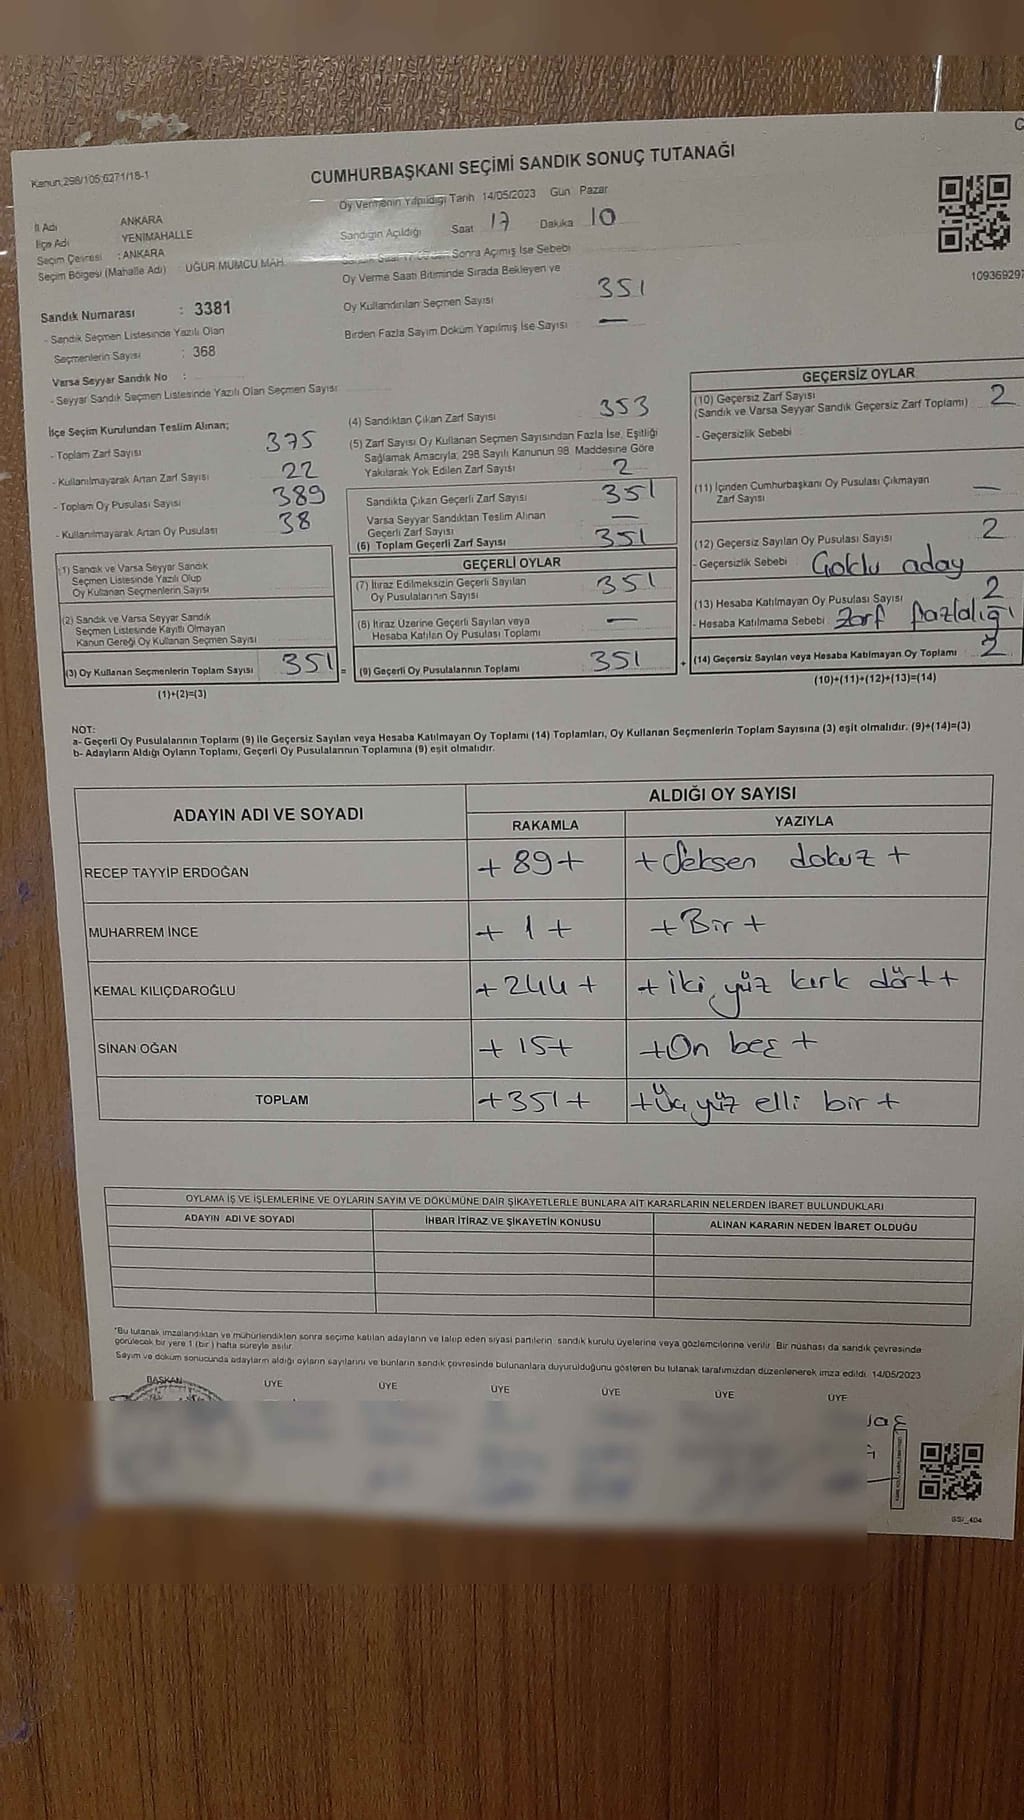 Kanun;298/105;6271/18-1
CUMHURBAŞKANI SEÇİMİ SANDIK SONUÇ TUTANAĞI
İl Adı ANKARA
İlçe Adı YENİMAHALLE
Seçim Çevresi : ANKARA
Seçim Bölgesi (Mahalle Adı) UĞUR MUMCU MAH.
Oy Vermenin Yapıldığı Tarih 14/05/2023 Gün Pazar
Sandığın Açıldığı Saat 17 Dakika 10
Sonra Açımış İse Sebebi
Oy Verme Saati Bitiminde Sırada Bekleyen ve
Oy Kullandırılan Seçmen Sayısı 351
Birden Fazla Sayım Döküm Yapılmış İse Sayısı —
109369297
Sandık Numarası : 3381
- Sandık Seçmen Listesinde Yazılı Olan
Seçmenlerin Sayısı : 368
Varsa Seyyar Sandık No :
- Seyyar Sandık Seçmen Listesinde Yazılı Olan Seçmen Sayısı
İlçe Seçim Kurulundan Teslim Alınan;
- Toplam Zarf Sayısı 375
- Kullanılmayarak Artan Zarf Sayısı 22
- Toplam Oy Pusulası Sayısı 389
- Kullanılmayarak Artan Oy Pusulası 38
(1) Sandık ve Varsa Seyyar Sandık
Seçmen Listesinde Yazılı Olup
Oy Kullanan Seçmenlerin Sayısı
(2) Sandık ve Varsa Seyyar Sandık
Seçmen Listesinde Kayıtlı Olmayan
Kanun Gereği Oy Kullanan Seçmen Sayısı
(3) Oy Kullanan Seçmenlerin Toplam Sayısı 351 =
(1)+(2)=(3)
(4) Sandıktan Çıkan Zarf Sayısı 353
(5) Zarf Sayısı Oy Kullanan Seçmen Sayısından Fazla İse, Eşitliği
Sağlamak Amacıyla; 298 Sayılı Kanunun 98. Maddesine Göre
Yakılarak Yok Edilen Zarf Sayısı 2
Sandıkta Çıkan Geçerli Zarf Sayısı 351
Varsa Seyyar Sandıktan Teslim Alınan
Geçerli Zarf Sayısı —
(6) Toplam Geçerli Zarf Sayısı 351
GEÇERLİ OYLAR
(7) İtiraz Edilmeksizin Geçerli Sayılan
Oy Pusulalarının Sayısı 351
(8) İtiraz Üzerine Geçerli Sayılan veya
Hesaba Katılan Oy Pusulası Toplamı —
(9) Geçerli Oy Pusulalarının Toplamı 351 +
GEÇERSİZ OYLAR
(10) Geçersiz Zarf Sayısı
(Sandık ve Varsa Seyyar Sandık Geçersiz Zarf Toplamı) 2
- Geçersizlik Sebebi
(11) İçinden Cumhurbaşkanı Oy Pusulası Çıkmayan
Zarf Sayısı —
(12) Geçersiz Sayılan Oy Pusulası Sayısı 2
- Geçersizlik Sebebi Çoklu aday
(13) Hesaba Katılmayan Oy Pusulası Sayısı 2
- Hesaba Katılmama Sebebi Zarf fazlalığı
(14) Geçersiz Sayılan veya Hesaba Katılmayan Oy Toplamı 2
(10)+(11)+(12)+(13)=(14)
NOT:
a- Geçerli Oy Pusulalarının Toplamı (9) ile Geçersiz Sayılan veya Hesaba Katılmayan Oy Toplamı (14) Toplamları, Oy Kullanan Seçmenlerin Toplam Sayısına (3) eşit olmalıdır. (9)+(14)=(3)
b- Adayların Aldığı Oyların Toplamı, Geçerli Oy Pusulalarının Toplamına (9) eşit olmalıdır.
ADAYIN ADI VE SOYADI ALDIĞI OY SAYISI
RAKAMLA YAZIYLA
RECEP TAYYİP ERDOĞAN +89+ +Seksen dokuz+
MUHARREM İNCE +1+ +Bir+
KEMAL KILIÇDAROĞLU +244+ +iki yüz kırk dört+
SİNAN OĞAN +15+ +On beş+
TOPLAM +351+ +Üç yüz elli bir+
OYLAMA İŞ VE İŞLEMLERİNE VE OYLARIN SAYIM VE DÖKÜMÜNE DAİR ŞİKAYETLERLE BUNLARA AİT KARARLARIN NELERDEN İBARET BULUNDUKLARI
ADAYIN ADI VE SOYADI İHBAR İTİRAZ VE ŞİKAYETİN KONUSU ALINAN KARARIN NEDEN İBARET OLDUĞU
*Bu tutanak imzalandıktan ve mühürlendikten sonra seçime katılan adayların ve talep eden siyasi partilerin sandık kurulu üyelerine veya gözlemcilerine verilir. Bir nüshası da sandık çevresinde
görülecek bir yere 1 (bir) hafta süreyle asılır.
Sayım ve döküm sonucunda adayların aldığı oyların sayılarını ve bunların sandık çevresinde bulunanlara duyurulduğunu gösteren bu tutanak tarafımızdan düzenlenerek imza edildi. 14/05/2023
BAŞKAN ÜYE ÜYE ÜYE ÜYE ÜYE ÜYE